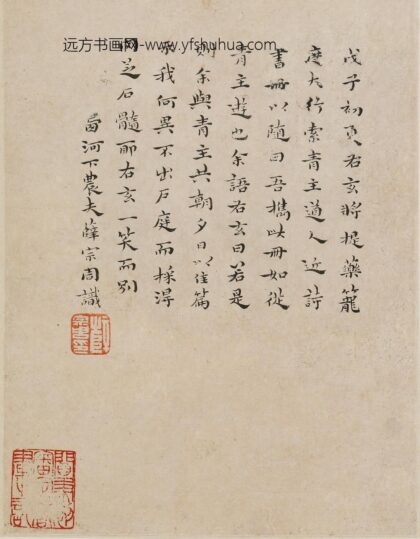 远方书画网-www.yfshuhua.com
戊子初夏右玄將提藥籠
度大行索青主道人近詩
書冊以随曰吾携此冊如從
青主遊也余語右玄曰若是
則余與青主共朝夕日以佳篇
我何異不出戶庭而採得
芝石髓耶右玄一笑而別
河下農夫薛宗周識